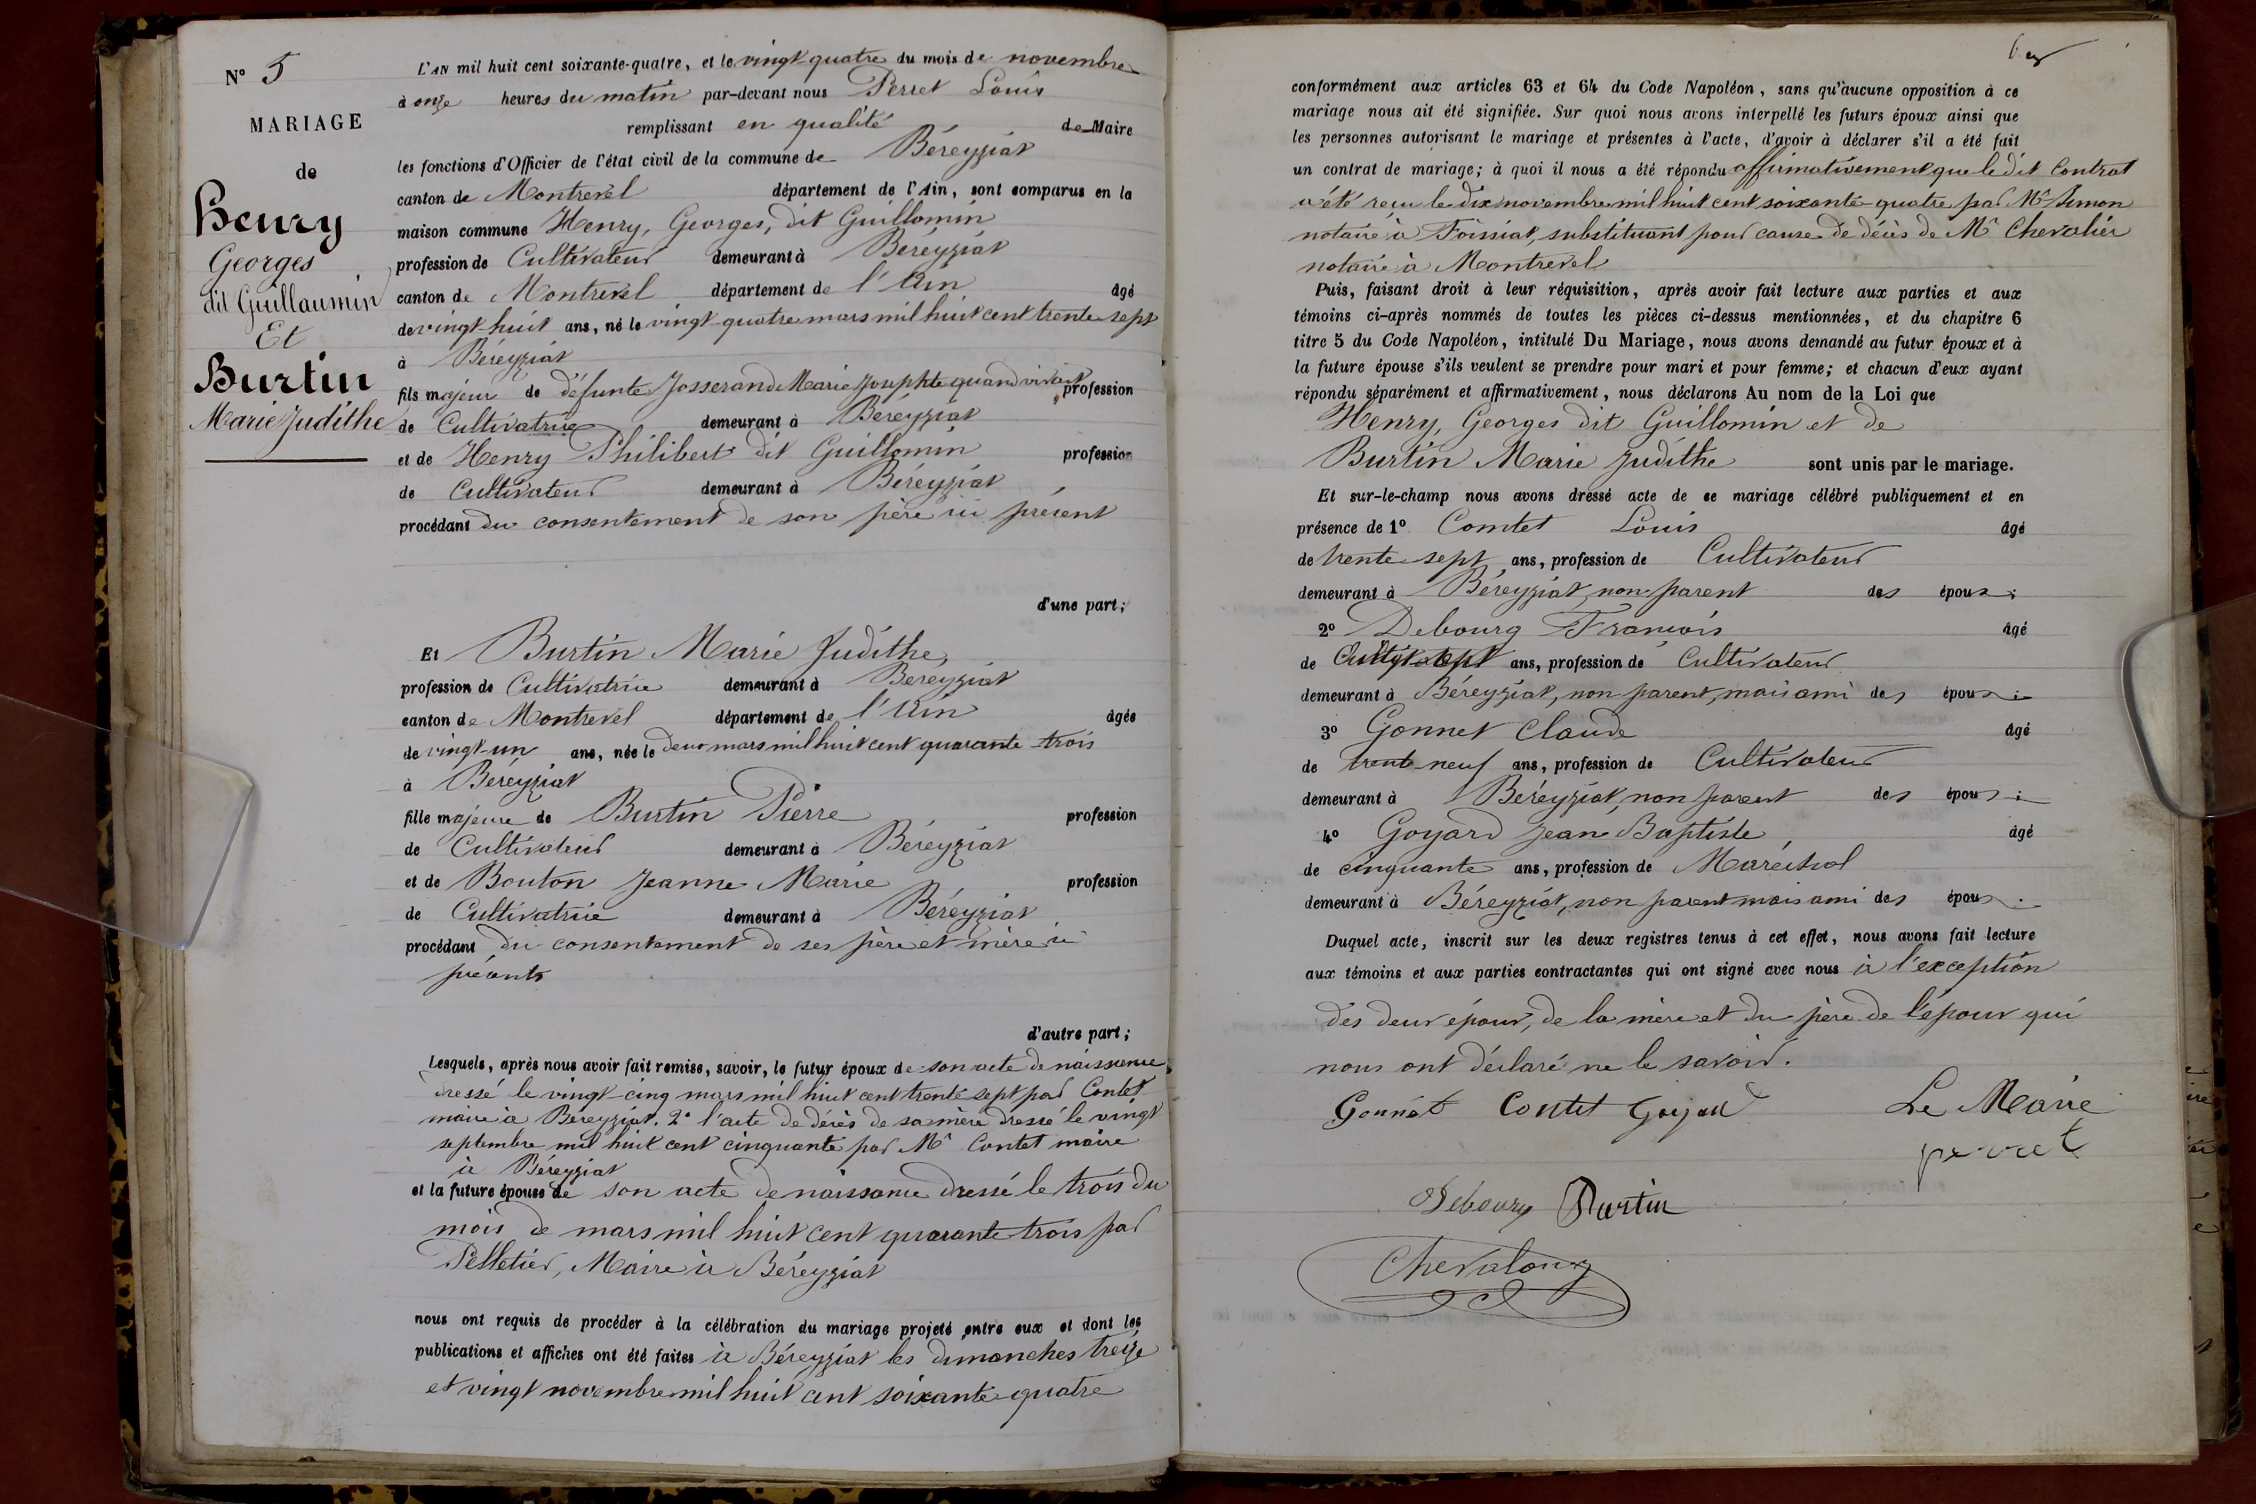 N° 5
MARIAGE
de
Henry
Georges
dit Guillaumin
Et
Burtin
Marie Judithe
L'AN mil huit cent soixante-quatre, et le vingt quatre du mois de novembre
à onze heures du matin par-devant nous Perret Louis
remplissant en qualité de Maire
les fonctions d'Officier de l'état civil de la commune de Béreyziat
canton de Montrevel département de l'Ain, sont comparus en la
maison commune Henry, Georges, dit Guillomin
profession de Cultivateur demeurant à Béreyziat
canton de Montrevel département de l'Ain âgé
de vingt-huit ans, né le vingt-quatre mars mil huit cent trente sept
à Béreyziat
fils majeur de défunte Josserand Marie Josephte quand vivait profession
de Cultivatrice demeurant à Béreyziat
et de Henry Philibert dit Guillomin profession
de Cultivateur demeurant à Béreyziat
procédant du consentement de son père ici présent
d'une part;
Et Burtin Marie Judithe,
profession de Cultivatrice demeurant à Béreyziat
canton de Montrevel département de l'Ain âgée
de vingt-un ans, née le deux mars mil huit cent quarante-trois
à Béreyziat
fille majeure de Burtin Pierre profession
de Cultivateur demeurant à Béreyziat
et de Bouton Jeanne Marie profession
de Cultivatrice demeurant à Béreyziat
procédant du consentement de ses père et mère ici
présents
d'autre part;
Lesquels, après nous avoir fait remise, savoir, le futur époux de son acte de naissance
dressé le vingt-cinq mars mil huit cent trente sept par Contet
maire à Béreyziat. 2° l'acte de décès de sa mère dressé le vingt
septembre mil huit cent cinquante par Mr Contet maire
à Béreyziat
et la future épouse de son acte de naissance dressé le trois du
mois de mars mil huit cent quarante trois par
Pelletier, Maire à Béreyziat
nous ont requis de procéder à la célébration du mariage projeté entre eux et dont les
publications et affiches ont été faites à Béreyziat les dimanches treize
et vingt novembre mil huit cent soixante-quatre
conformément aux articles 63 et 64 du Code Napoléon, sans qu'aucune opposition à ce
mariage nous ait été signifiée. Sur quoi nous avons interpellé les futurs époux ainsi que
les personnes autorisant le mariage et présentes à l'acte, d'avoir à déclarer s'il a été fait
un contrat de mariage; à quoi il nous a été répondu affirmativement que le dit Contrat
a été reçu le dix novembre mil huit cent soixante-quatre par Mr Simon
notaire à Foissiat, substituant pour cause de décès de Mr Chevalier
notaire à Montrevel
Puis, faisant droit à leur réquisition, après avoir fait lecture aux parties et aux
témoins ci-après nommés de toutes les pièces ci-dessus mentionnées, et du chapitre 6
titre 5 du Code Napoléon, intitulé Du Mariage, nous avons demandé au futur époux et à
la future épouse s'ils veulent se prendre pour mari et pour femme; et chacun d'eux ayant
répondu séparément et affirmativement, nous déclarons Au nom de la Loi que
Henry, Georges dit Guillomin et de
Burtin Marie Judithe sont unis par le mariage.
Et sur-le-champ nous avons dressé acte de ce mariage célébré publiquement et en
présence de 1° Comtet Louis âgé
de trente sept ans, profession de Cultivateur
demeurant à Béreyziat, non parent des époux;
2° Debourg François âgé
de ans, profession de Cultivateur
demeurant à Béreyziat, non parent, mais ami des époux;
3° Gonnet Claude âgé
de trente-neuf ans, profession de Cultivateur
demeurant à Béreyziat, non parent des époux;
4° Goyard Jean Baptiste, âgé
de cinquante ans, profession de Maréchal
demeurant à Béreyziat, non parent mais ami des époux.
Duquel acte, inscrit sur les deux registres tenus à cet effet, nous avons fait lecture
aux témoins et aux parties contractantes qui ont signé avec nous à l'exception
des deux époux, de la mère et du père de l'époux qui
nous ont déclaré ne le savoir.
Gonnet Contet Goyard Le Maire
perret
Debourg Burtin